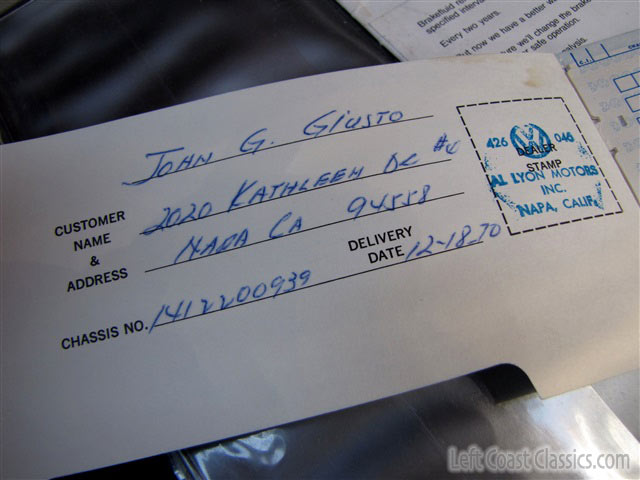 Brakefluid
specified interv
Every two years.
ut now we have a better w
sure we'll change the brake
r safe operation.
alysis.
JOHN G. GIUSTO
2020 KATHLEEN DR #4
NAPA CA 94558
CUSTOMER
NAME
&
ADDRESS
DELIVERY
DATE 12-18-70
CHASSIS NO. 1412200939
426 046
DEALER
STAMP
AL LYON MOTORS
INC.
NAPA, CALIF.
Left Coast Classics.com